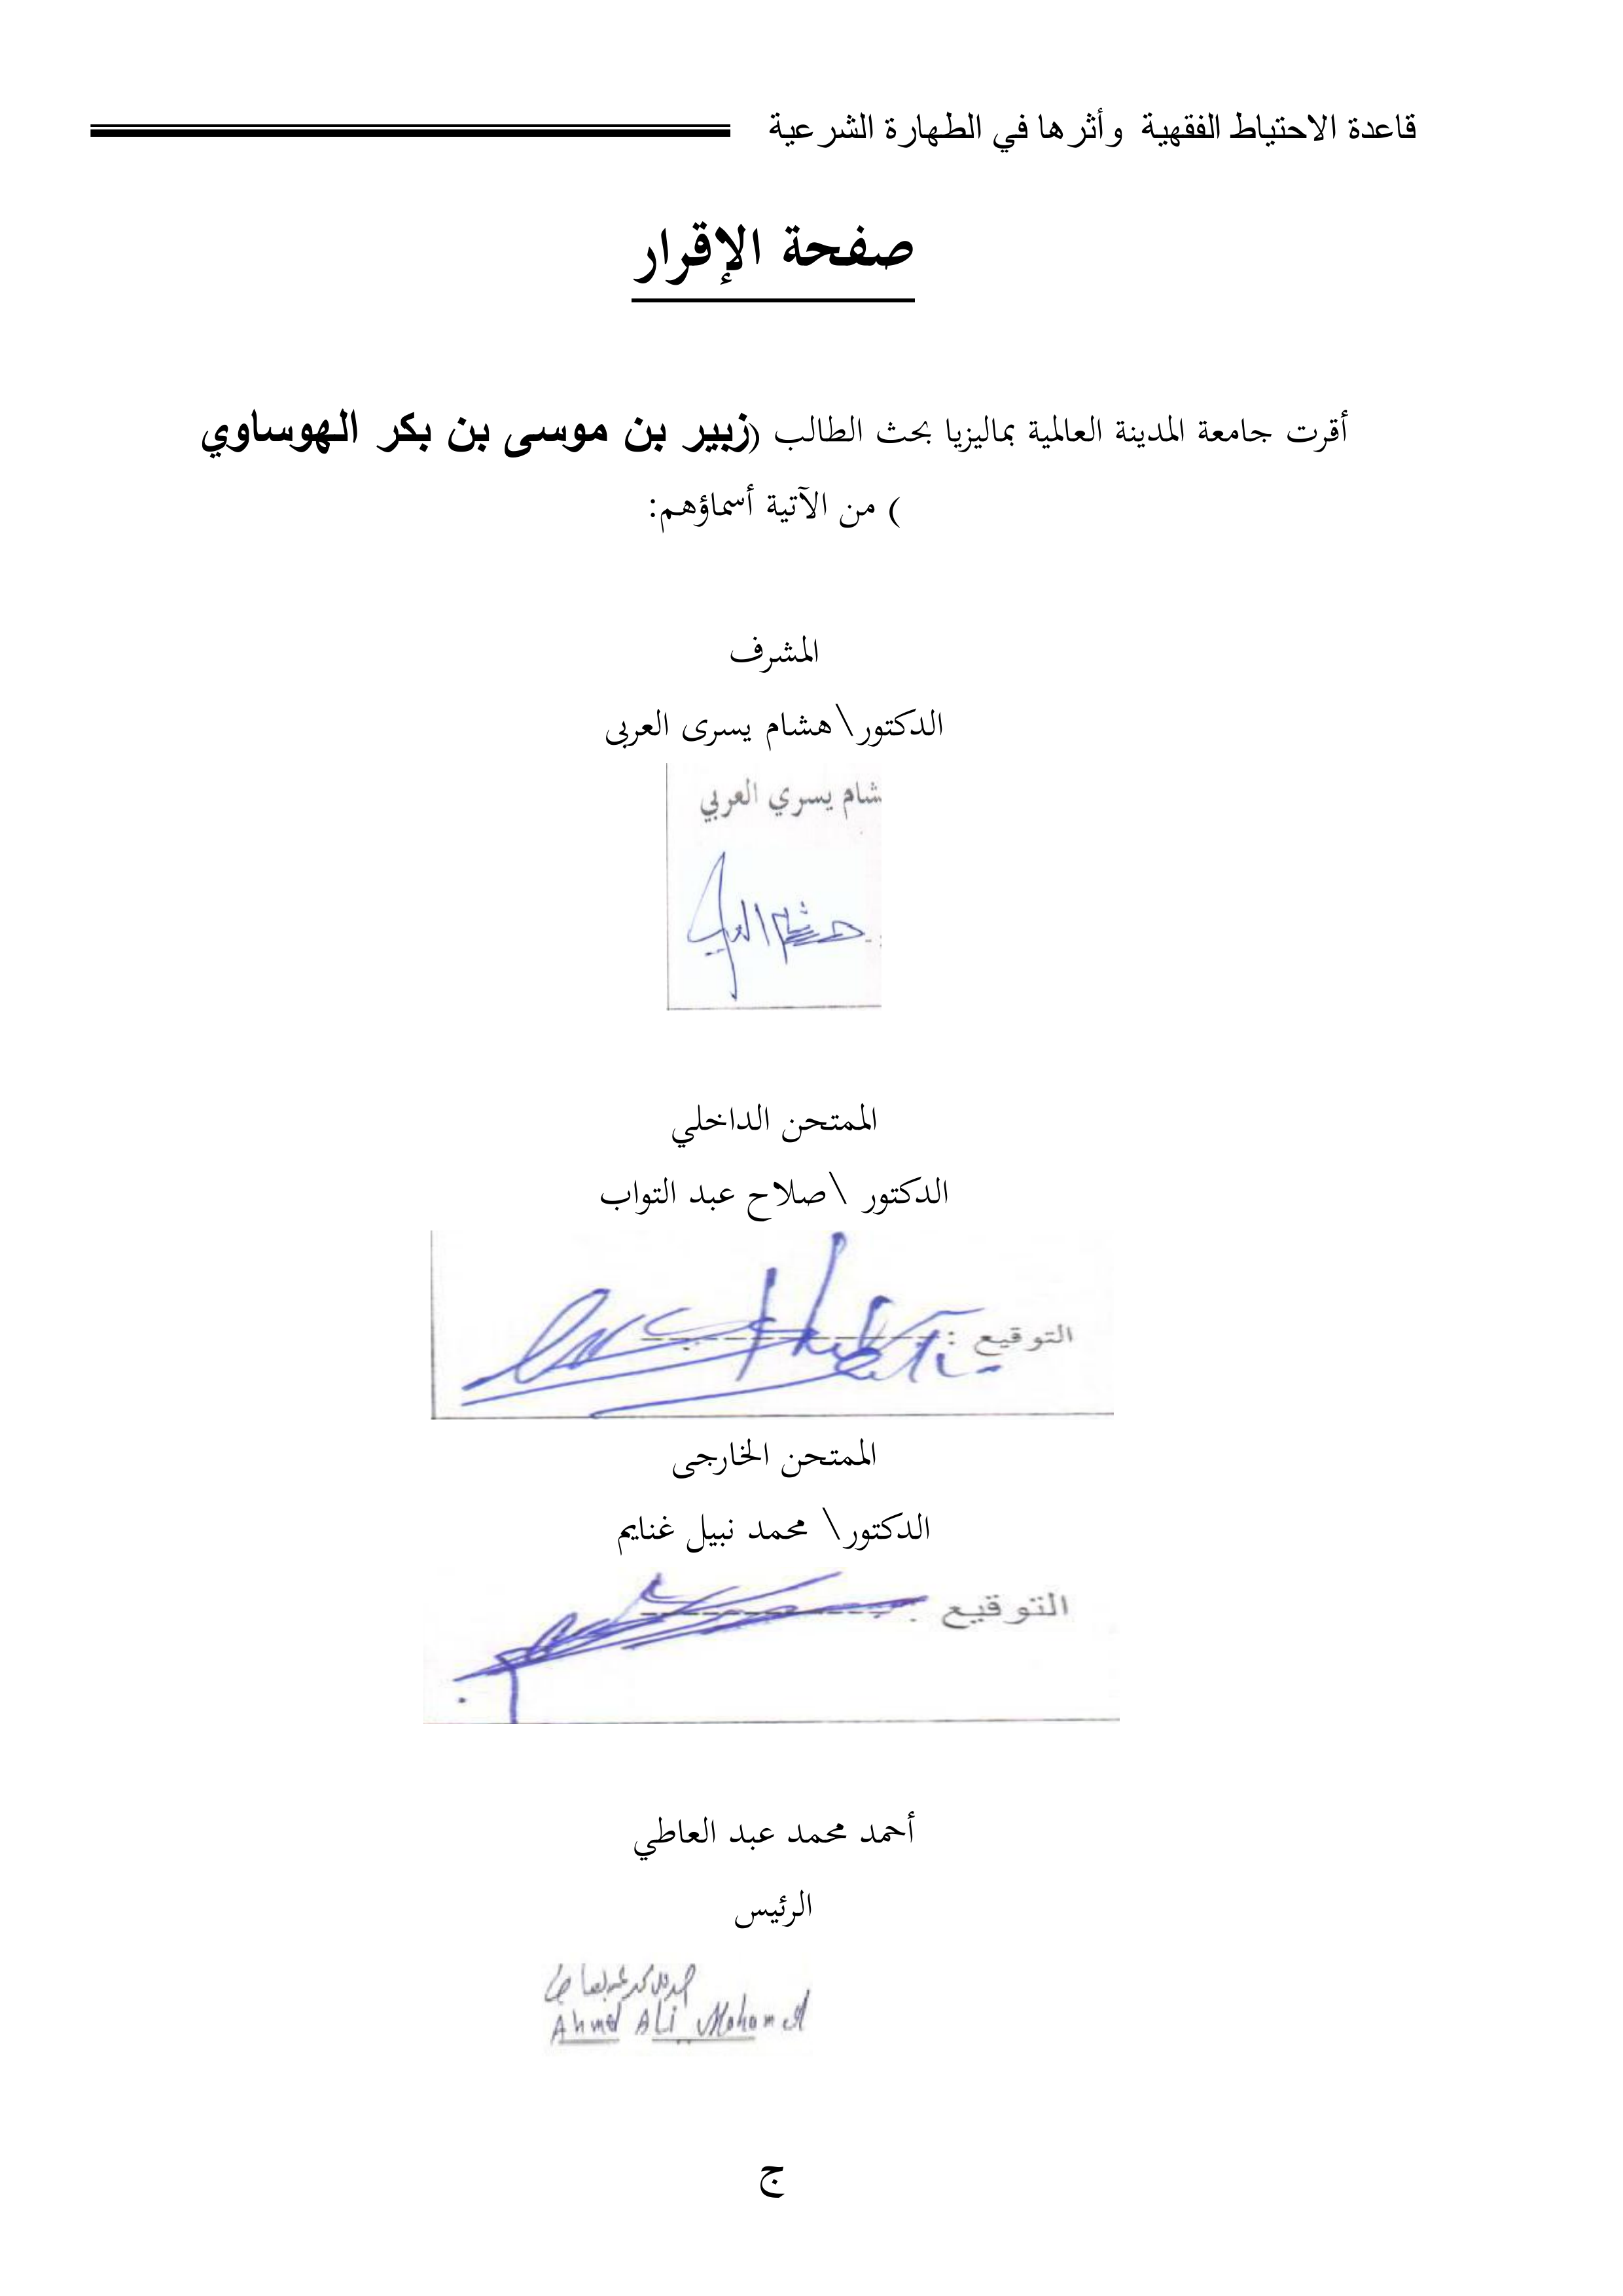 قاعدة الاحتياط الفقهية وأثرها في الطهارة الشرعية
صفحة الإقرار
أقرت جامعة المدينة العالمية بماليزيا بحث الطالب (زبير بن موسى بن بكر الهوساوي
) من الآتية أسماؤهم:
المشرف
الدكتور\هشام يسرى العربى
شام يسري العربي
هشام العربي
الممتحن الداخلي
الدكتور \صلاح عبد التواب
التوقيع :
الممتحن الخارجى
الدكتور\ محمد نبيل غنايم
التوقيع :
أحمد محمد عبد العاطي
الرئيس
Ahmed Ali Mohamed
ج